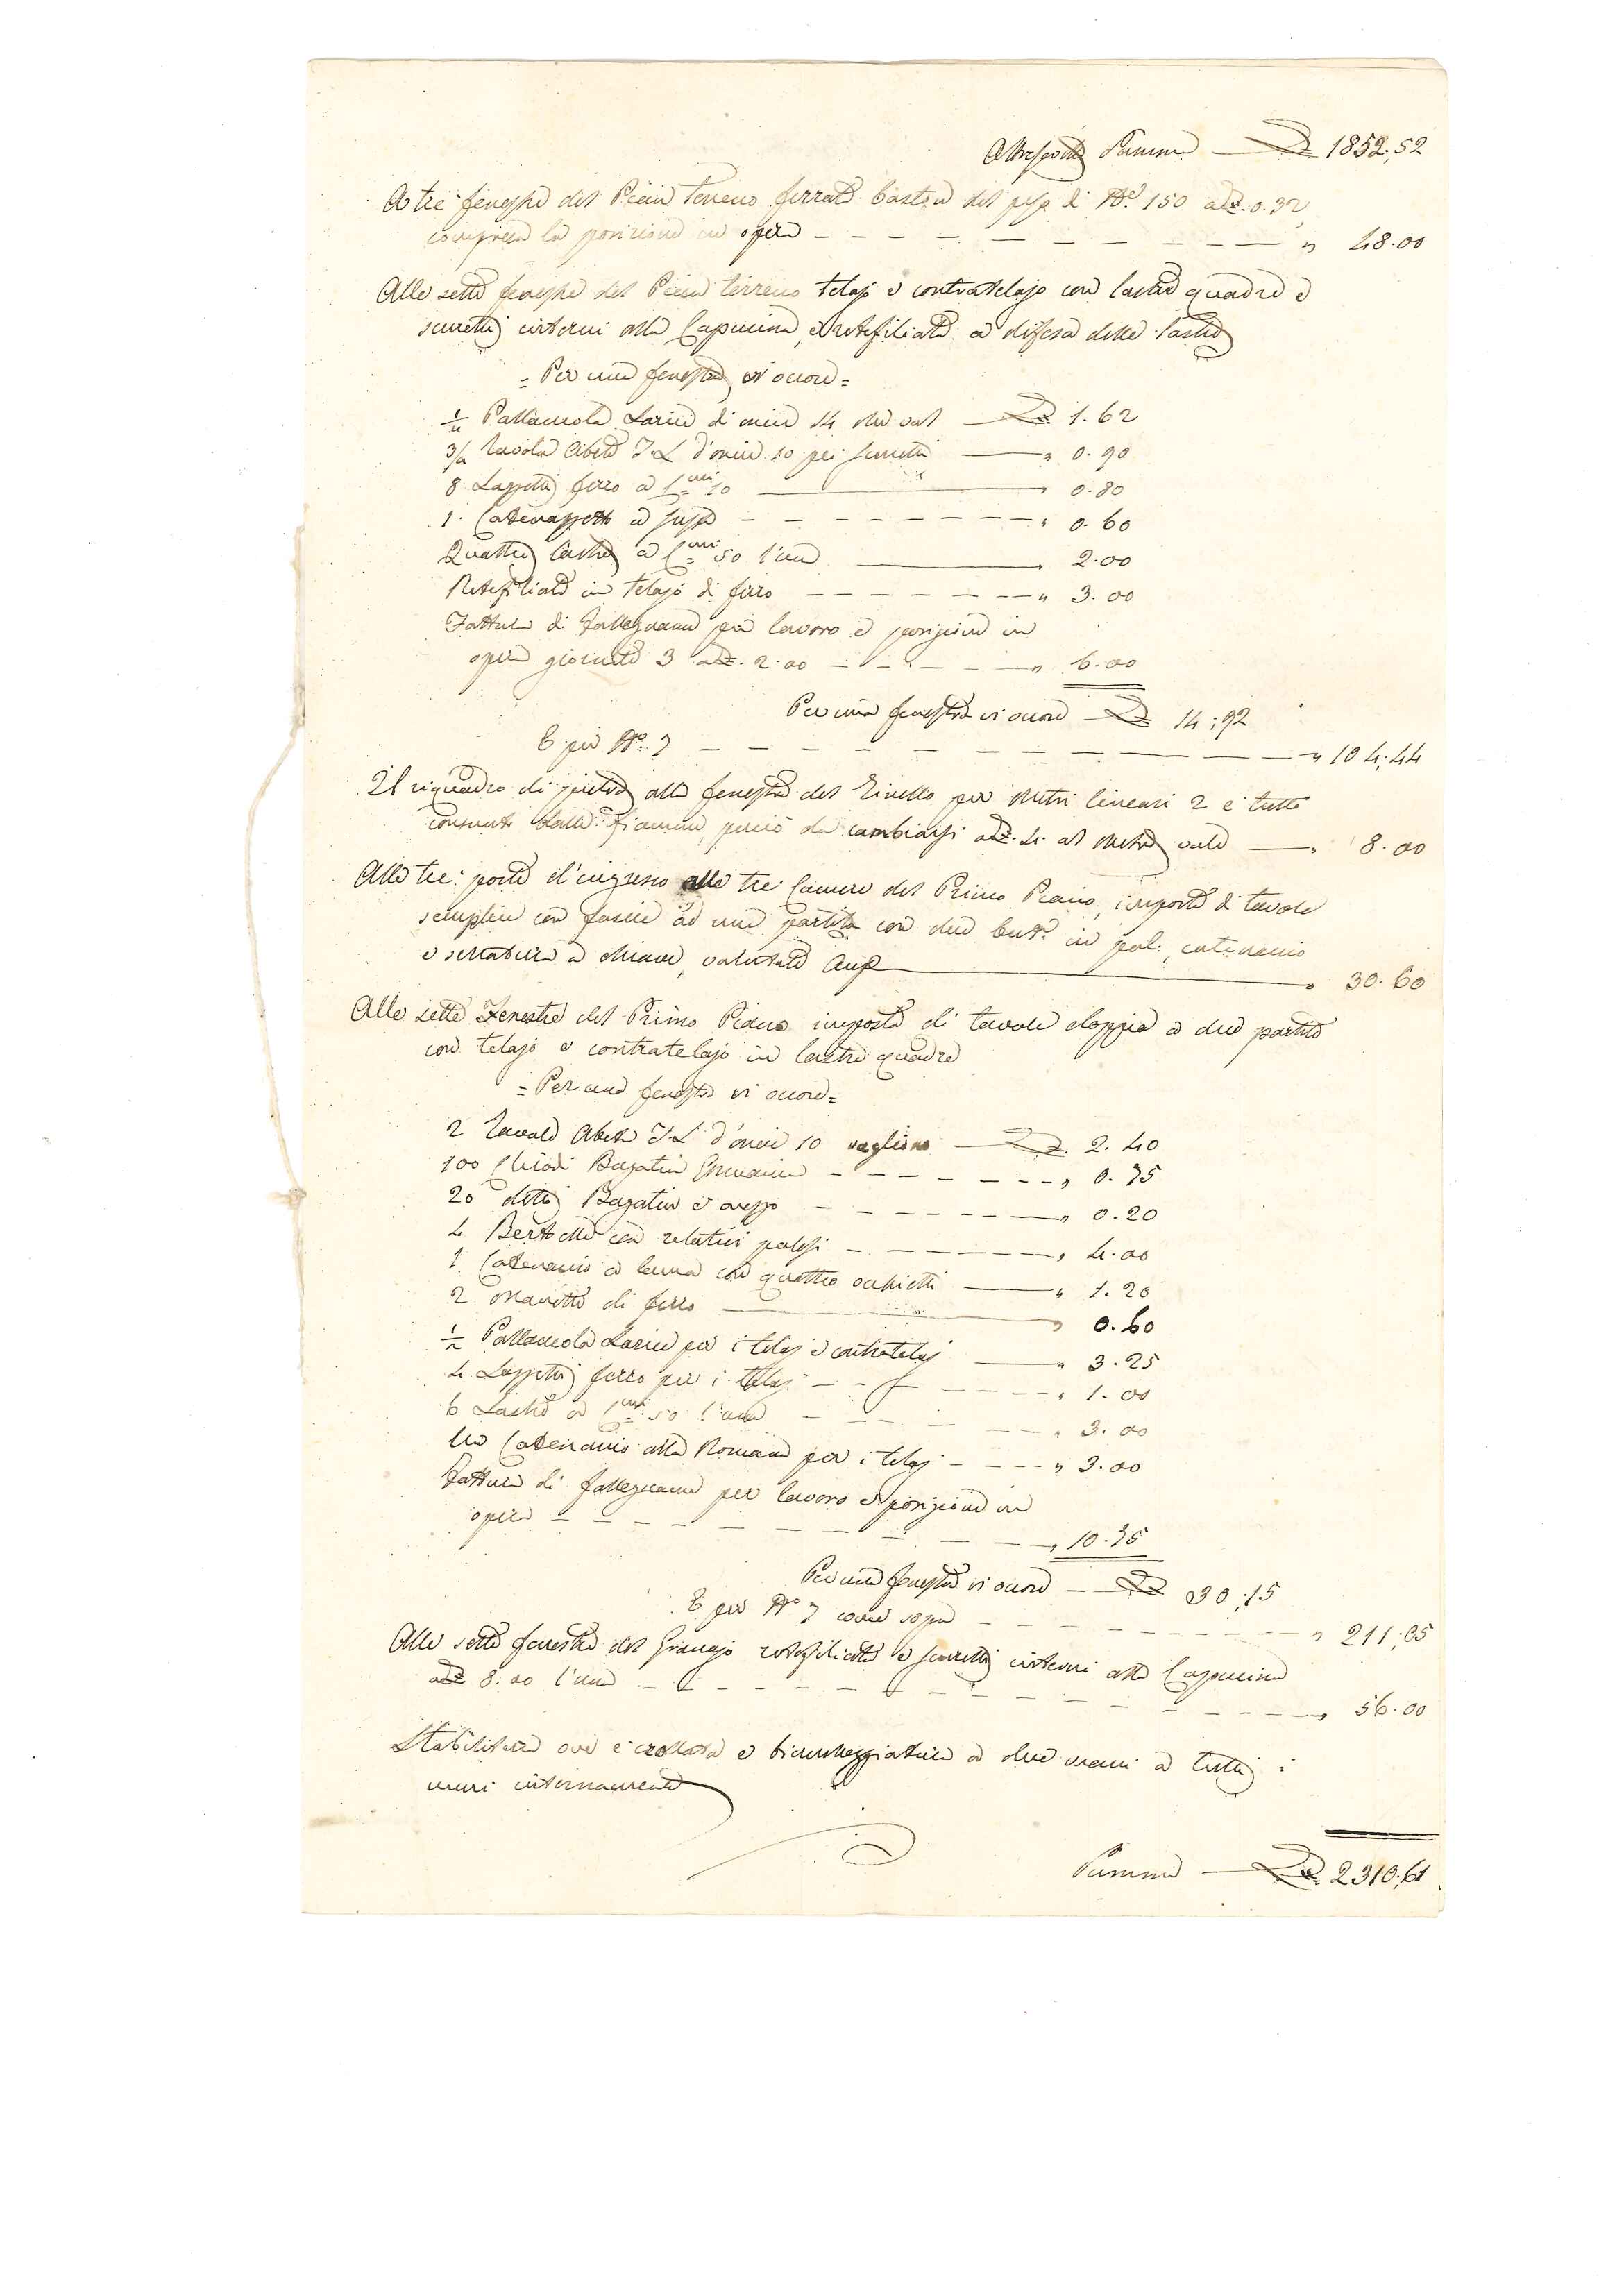 Altroscritta Summa 1852:52
A tre fenestre del Pian Terreno ferrate baston del peso di N° 150 a £ 0.32
compresa la posizione in opera - - - - " 48.00
Alle sette fenestre del Pian terreno telajo e contratelajo con lastre quadre e
scuretti interni alla Capucina, e retefiliata a difesa delle lastre
= Per una fenestra vi occore =
1/2 Pallancola Larice di oncie 14 che val £ 1.62
3/4 Tavola Abete T.L d'oncie 10 pei scuretti " 0.90
8 Lappetti ferro a Cmi 10 " 0.80
1. Catenazzetto a susta - - - " 0.60
Quattro lastre a Cmi 50 l'una " 2.00
Retefiliata in telajo di ferro - - - " 3.00
Fattura di fallegname per lavoro e posizione in
opera giornate 3 a £. 2.00 - - - " 6.00
Per una fenestra vi occore £ 14:92
E per N° 7 - - - " 104:44
Il riquadro di pietra alla fenestra del Tinello per Metri lineari 2 è tutto
consunto dalle fiamme, perciò da cambiarsi a £. 4. al Metro vale " 8.00
Alle tre porte d'ingresso alle tre Camere del Primo Piano, imposte di tavole
semplice con fascie ad una partita con due bert.e in pol:, catenacio
e serratura a chiave, valutate Aus £ " 30.60
Alle sette Fenestre del Primo Piano imposte di tavole doppie a due partite
con telajo e contratelajo in lastre quadre
= Per una fenestra vi occore =
2 Tavole Abete T.L d'oncie 10 vagliono £. 2.40
100 Chiodi Bagatin - - - " 0.75
20 detti Bagatin e mezzo - - - " 0.20
4 Bertoelle con relativi polesi - - - " 4.00
1. Catenacio a lama con quattro ochietti " 1.20
2 Manette di ferro " 0.60
1/2 Pallancola Larice per i telaj e contratelaj " 3.25
4 Lappetti ferro per i telaj - - - " 1.00
6 Lastre a Cmi 50 l'una - - - " 3.00
Un Catenacio alla Romana per i telaj - - - " 3.00
Fattura di fallegname per lavoro e posizione in
opera - - - " 10.75
Per una fenestra vi occore - £ 30:15
E per N° 7 come sopra - - - " 211:05
Alle sette fenestre del Granajo retefiliate e scuretti interni alla Cappucina
a £ 8:00 l'una - - - " 56.00
Stabilitura ove è crollata e biancheggiatura a due mani a tutti i
muri internamente
Summa £ 2310:61